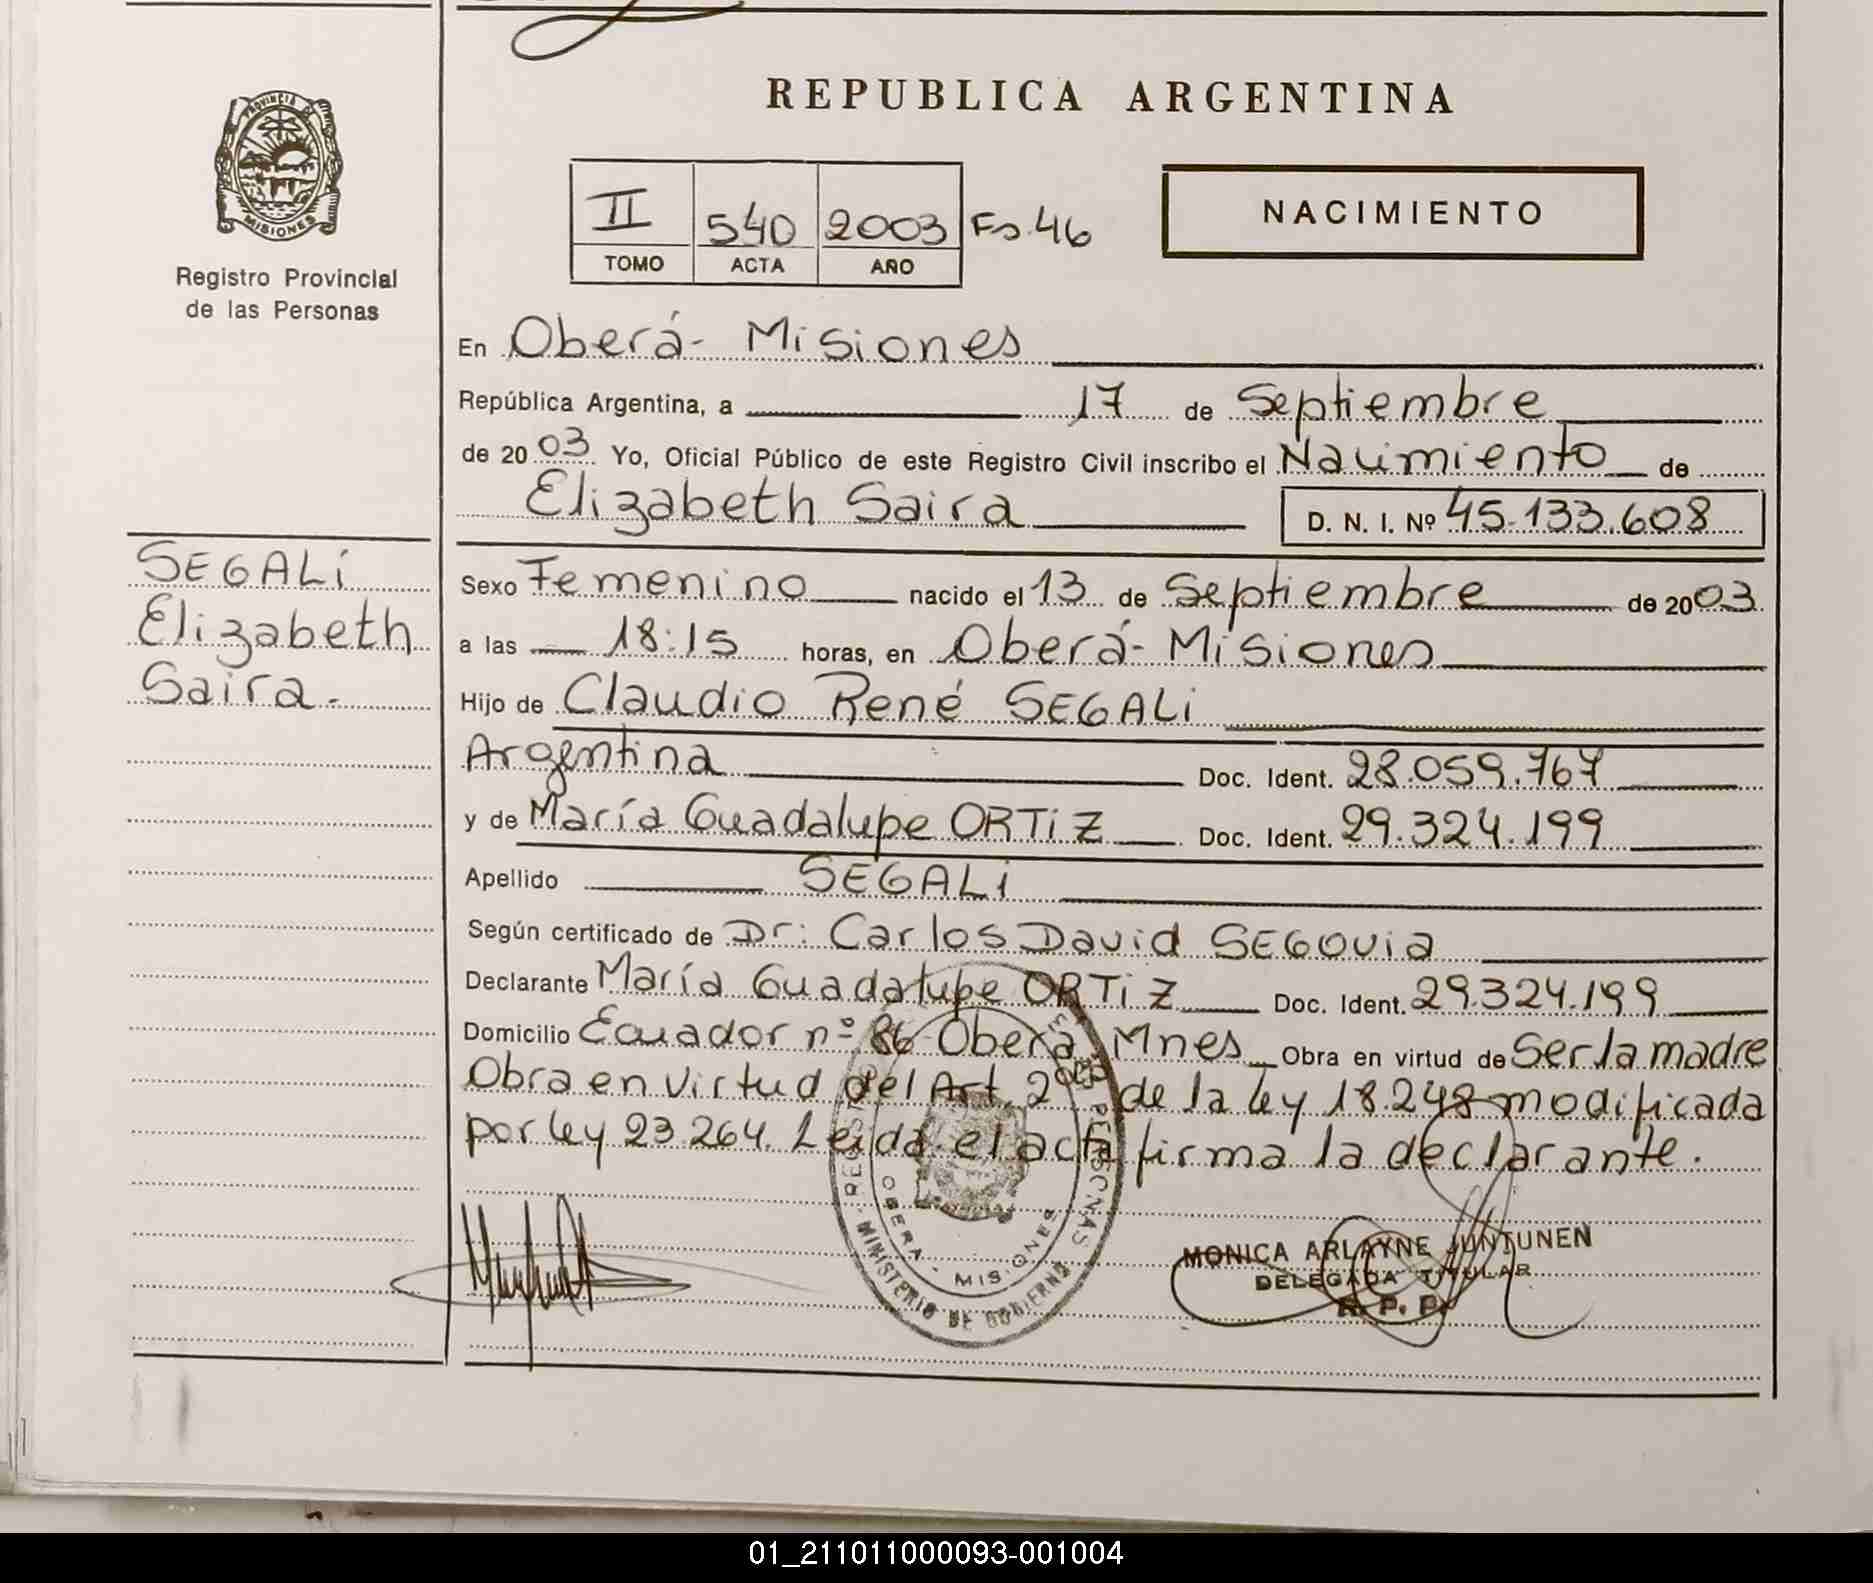 REPUBLICA ARGENTINA
PROVINCIA DE
MISIONES
Registro Provincial
de las Personas
II 540 2003 Fo. 46
TOMO ACTA AÑO
NACIMIENTO
En Oberá- Misiones
República Argentina, a 17 de Septiembre
de 2003 Yo, Oficial Público de este Registro Civil inscribo el Nacimiento de
Elizabeth Saira D. N. I. Nº 45.133.608
SEGALi
Elizabeth
Saira.-
Sexo Femenino nacido el 13 de Septiembre de 2003
a las 18:15 horas, en Oberá- Misiones
Hijo de Claudio René SEGALi
Argentina Doc. Ident. 28.059.767
y de María Guadalupe ORTiZ Doc. Ident. 29.324.199
Apellido SEGALi
Según certificado de Dr: Carlos David SEGOViA
Declarante María Guadalupe ORTiZ Doc. Ident. 29.324.199
Domicilio Ecuador nº 86 Oberá Mnes Obra en virtud de Ser la madre
Obra en virtud del Art. 2do de la ley 18.248 modificada
por ley 23.264. Leida el acta firma la declarante.
OBERA - MISIONES
MINISTERIO DE GOBIERNO
MONICA ARLAYNE JUNTUNEN
DELEGADA TITULAR
R. P. P.
01_211011000093-001004